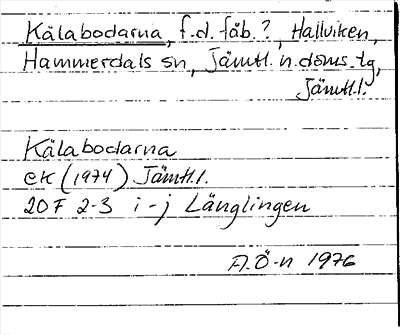 Kälabodarna, f.d. fäb.?, Hallviken,
Hammerdals sn, Jämtl. n. doms.tg,
Jämtl.l.
Kälabodarna
ek (1974) Jämtl.l.
20F 2-3 i-j Länglingen
A.Ö-n 1976